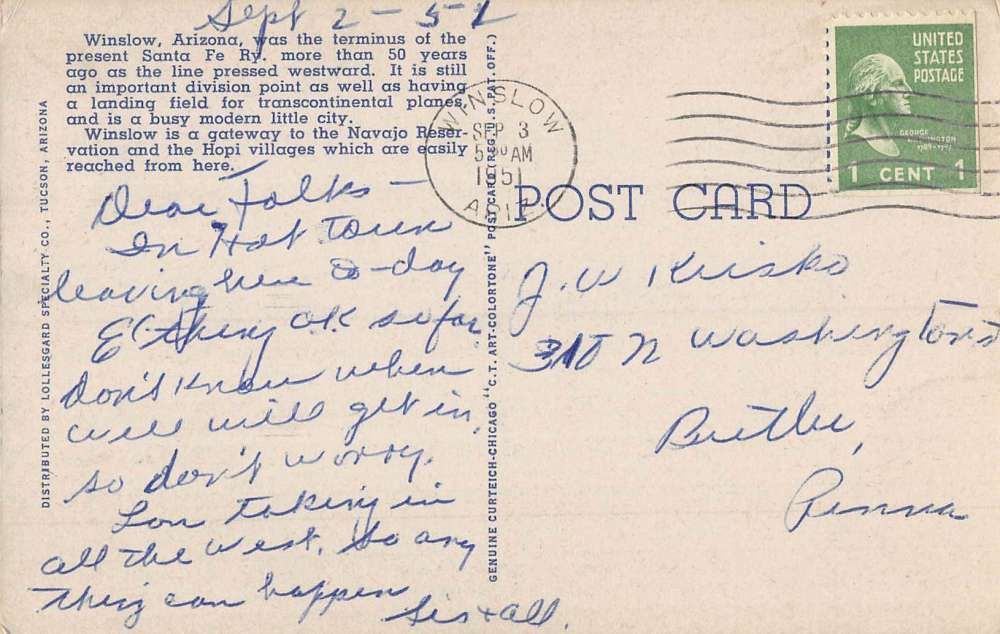 Sept 2-51
Winslow, Arizona, was the terminus of the
present Santa Fe Ry. more than 50 years
ago as the line pressed westward. It is still
an important division point as well as having
a landing field for transcontinental planes,
and is a busy modern little city.
Winslow is a gateway to the Navajo Reser-
vation and the Hopi villages which are easily
reached from here.
Dear Folks -
In Hot town
leaving here to-day
E'thing OK so far,
don't know when
will get in,
so don't worry.
Lon taking in
all the west, so any
thing can happen
Sis + all.
DISTRIBUTED BY LOLLESGARD SPECIALTY CO., TUCSON, ARIZONA
GENUINE CURTEICH-CHICAGO "C.T. ART-COLORTONE" POST CARD (REG. U.S. PAT. OFF.)
WINSLOW
SEP 3
AM
1951
ARIZ
POST CARD
UNITED
STATES
POSTAGE
GEORGE
WASHINGTON
1789-1797
1 CENT 1
J. W Krisko
310 N Washington St
Butler,
Penna